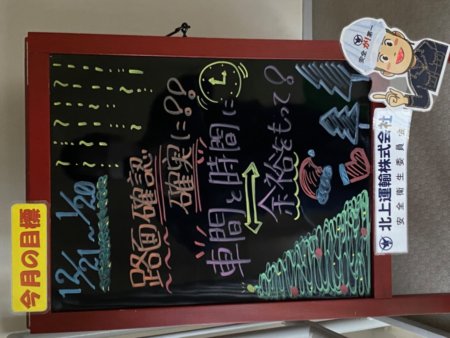 今月の目標
12/21～1/20
路面確認
確実に!!
車間と時間に
余裕をもって!
安全第一
北上運輸株式会社
安全衛生委員会